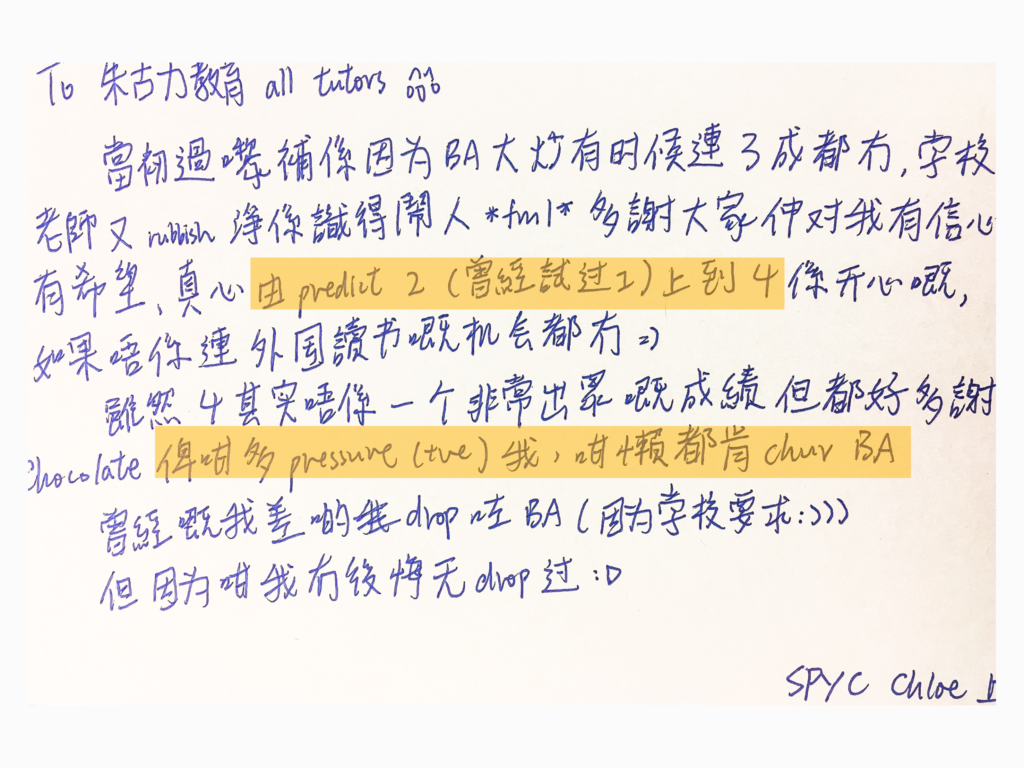 To 朱古力教育 all tutors
當初過嚟補係因为BA大炒有时候連3成都冇,学校
老師又rubbish 淨係識得鬧人 *fml* 多謝大家仲对我有信心
有希望、真心由predict 2 (曾經試过1)上到4係开心嘅,
如果唔係連外国讀书嘅机会都冇 =)
雖然4其实唔係一个非常出眾嘅成績但都好多謝
Chocolate 俾咁多pressure (+ve) 我,咁懶都肯chur BA
曾經嘅我差啲我drop咗BA (因为学校要求:)))
但因为咁我冇後悔无drop过 :D
SPYC Chloe 上